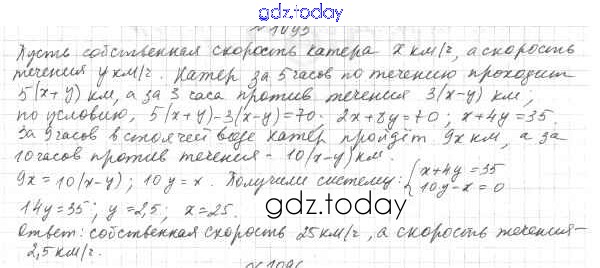 gdz.today
№ 1095
Пусть собственная скорость катера x км/ч, а скорость
течения y км/ч. Катер за 5 часов по течению проходит
5(x+y) км, а за 3 часа против течения 3(x-y) км;
по условию, 5(x+y)-3(x-y)=70. 2x+8y=70; x+4y=35.
За 9 часов в стоячей воде катер пройдёт 9x км, а за
10 часов против течения - 10(x-y) км.
9x=10(x-y); 10y=x. Получили систему: { x+4y=35
10y-x=0
14y=35; y=2,5; x=25.
gdz.today
Ответ: собственная скорость 25 км/ч, а скорость течения -
2,5 км/ч.
№ 1096